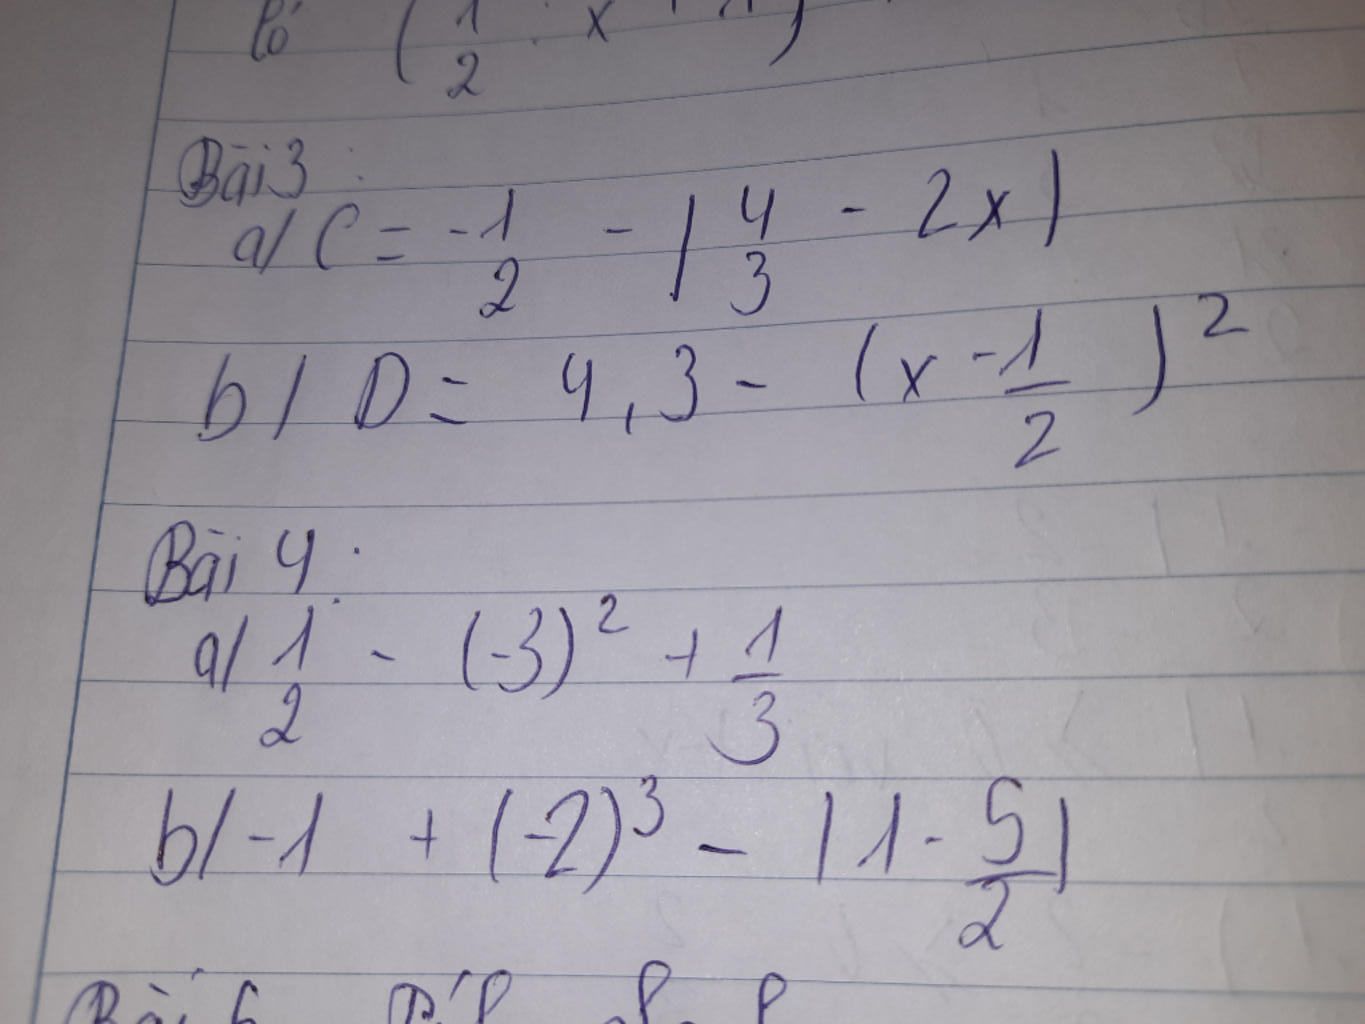 ( 1/2 . x
Bài 3 :
a/ C = -1/2 - | 4/3 - 2x |
b/ D = 4,3 - ( x - 1/2 )²
Bài 4 :
a/ 1/2 - (-3)² + 1/3
b/ -1 + (-2)³ - | 1 - 5/2 |